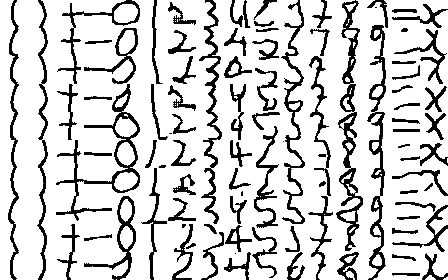 ( ) + - 0 1 2 3 4 5 7 8 9 = x
( ) + - 0 1 2 3 4 5 7 8 9 = x
( ) + - 0 1 2 3 4 5 7 8 9 = x
( ) + - 0 1 2 3 4 5 6 7 8 9 = x
( ) + - 0 1 2 3 4 5 7 8 9 = x
( ) + - 0 1 2 3 4 5 7 8 9 = x
( ) + - 0 1 2 3 4 5 7 8 9 = x
( ) + - 0 1 2 3 4 5 7 8 9 = x
( ) + - 0 1 2 3 4 5 7 8 9 = x
( ) + - 0 1 2 3 4 5 6 7 8 9 = x